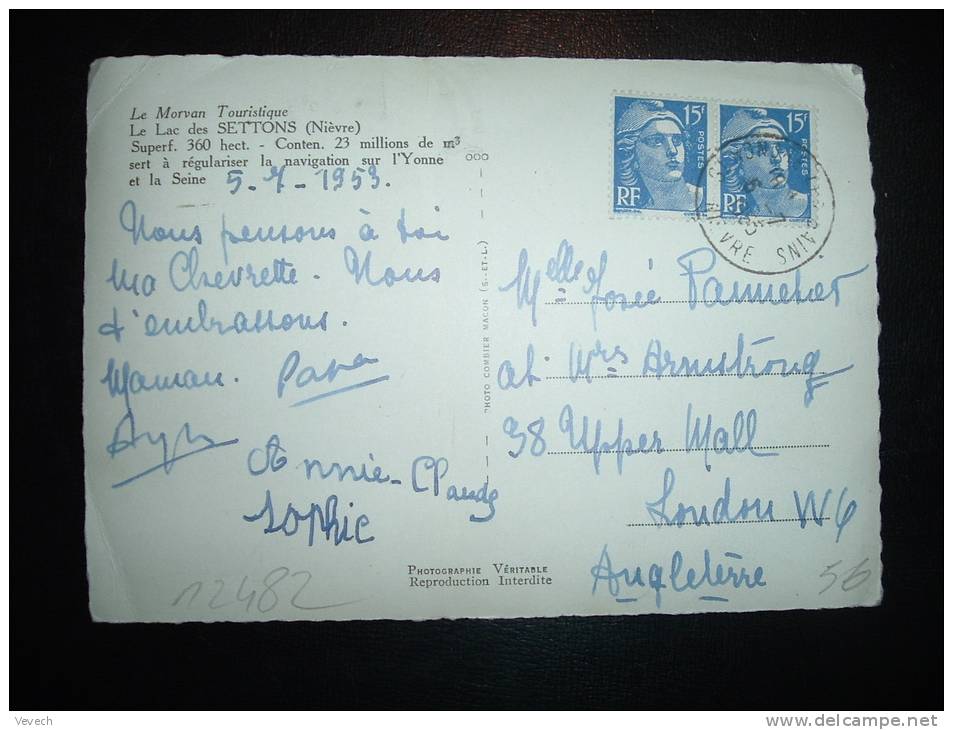 Le Morvan Touristique
Le Lac des SETTONS (Nièvre)
Superf. 360 hect. - Conten. 23 millions de m³
sert à régulariser la navigation sur l'Yonne
et la Seine
5-7-1953.
Nous pensons à toi
ma Chevrette. Nous
t'embrassons.
Maman. Papa
Annie-Claude
Sophie
12482
PHOTO COMBIER MACON (S.-ET-L.)
PHOTOGRAPHIE VÉRITABLE
Reproduction Interdite
15F
POSTES
RF
15F
POSTES
RF
NIEVRE
Melle Josée
at Mrs Armstrong
38 Upper Mall
London W6
Angleterre
56
Vevech
www.delcampe.net